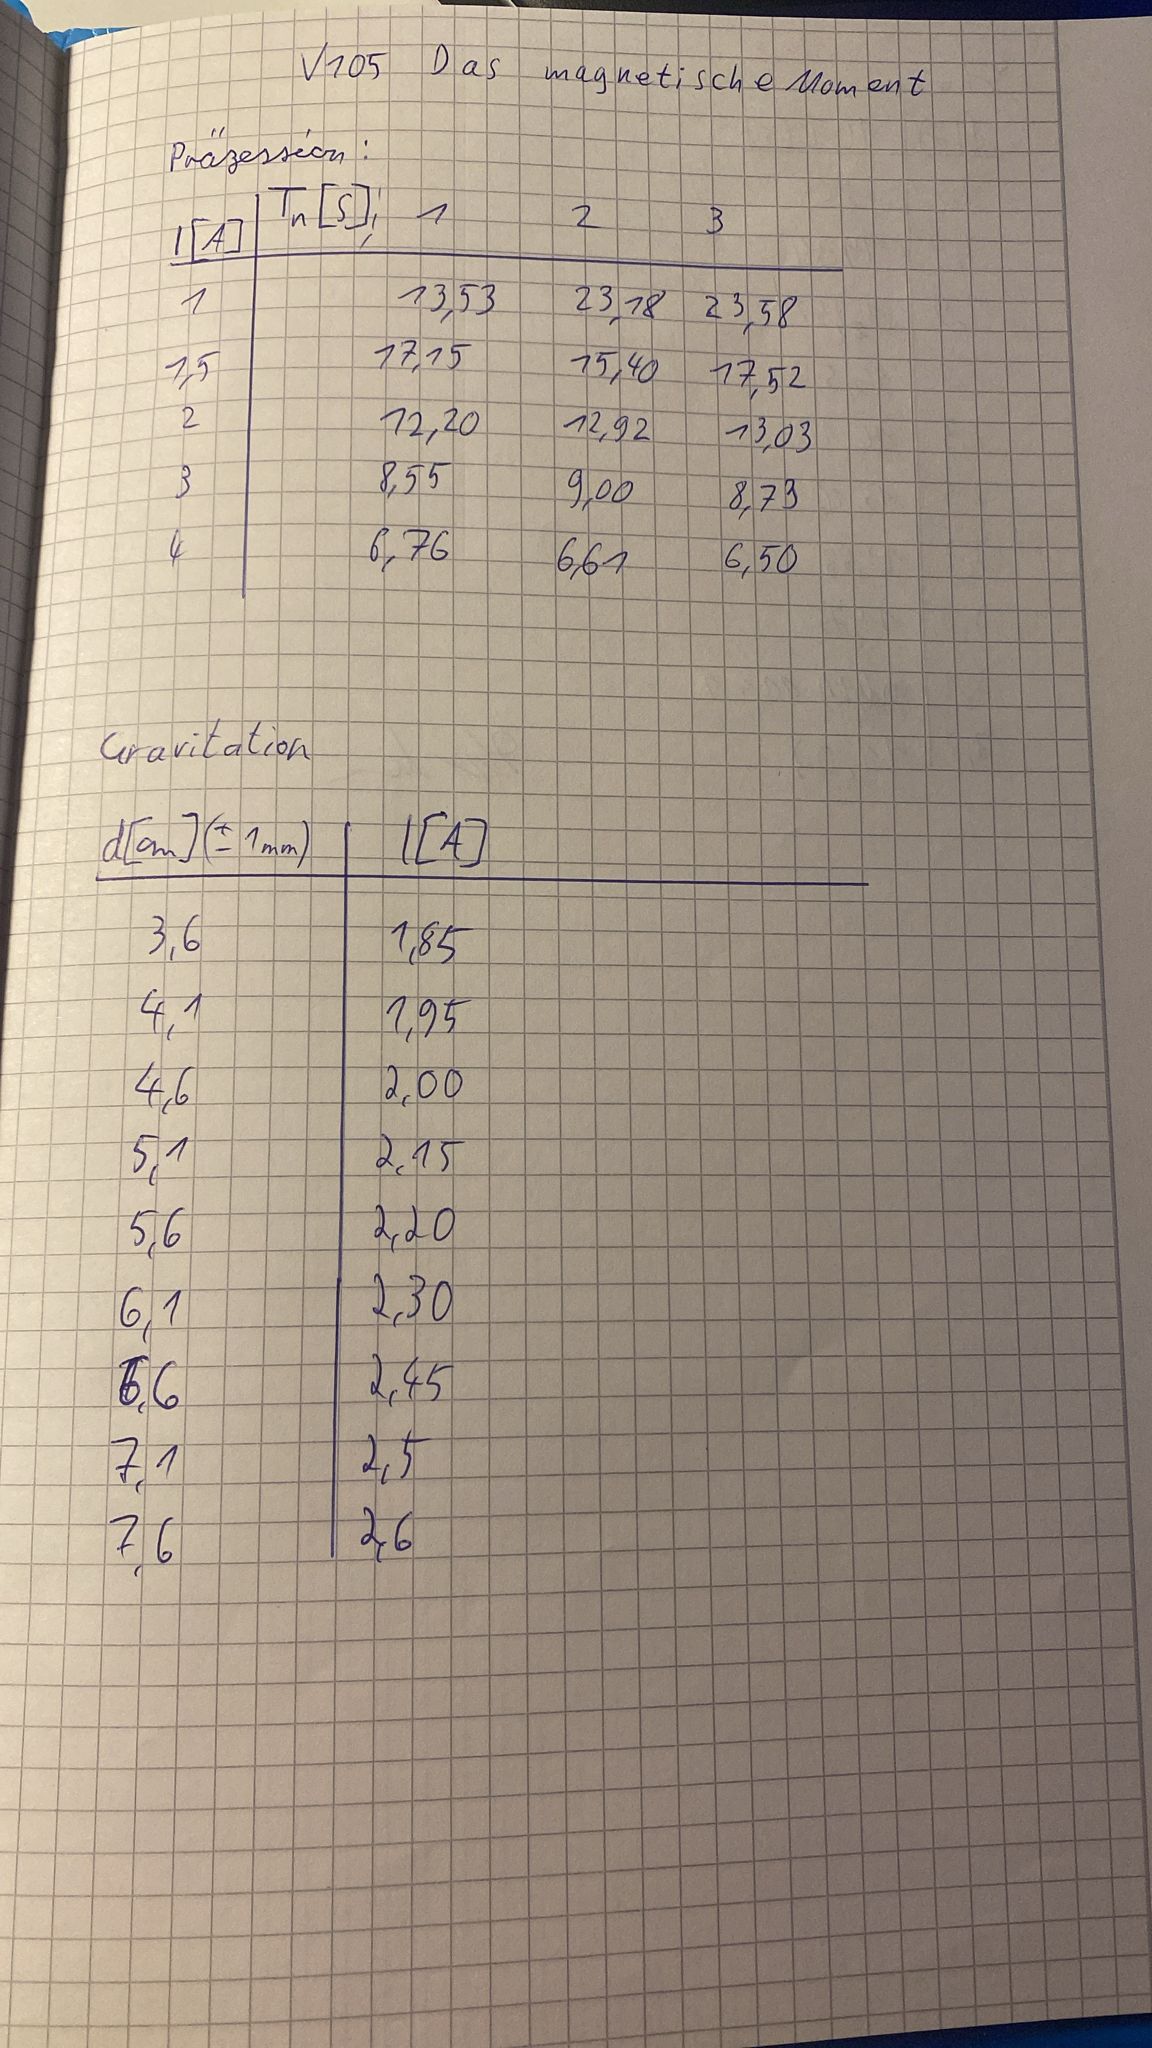 V105 Das magnetische Moment
Präzession:
I[A] Tn[S]; 1 2 3
1 13,53 23,18 23,58
1,5 17,15 15,40 17,52
2 12,20 12,92 13,03
3 8,55 9,00 8,73
4 6,76 6,61 6,50
Gravitation
d[cm](± 1mm) I[A]
3,6 1,85
4,1 1,95
4,6 2,00
5,1 2,15
5,6 2,20
6,1 2,30
6,6 2,45
7,1 2,5
7,6 2,6